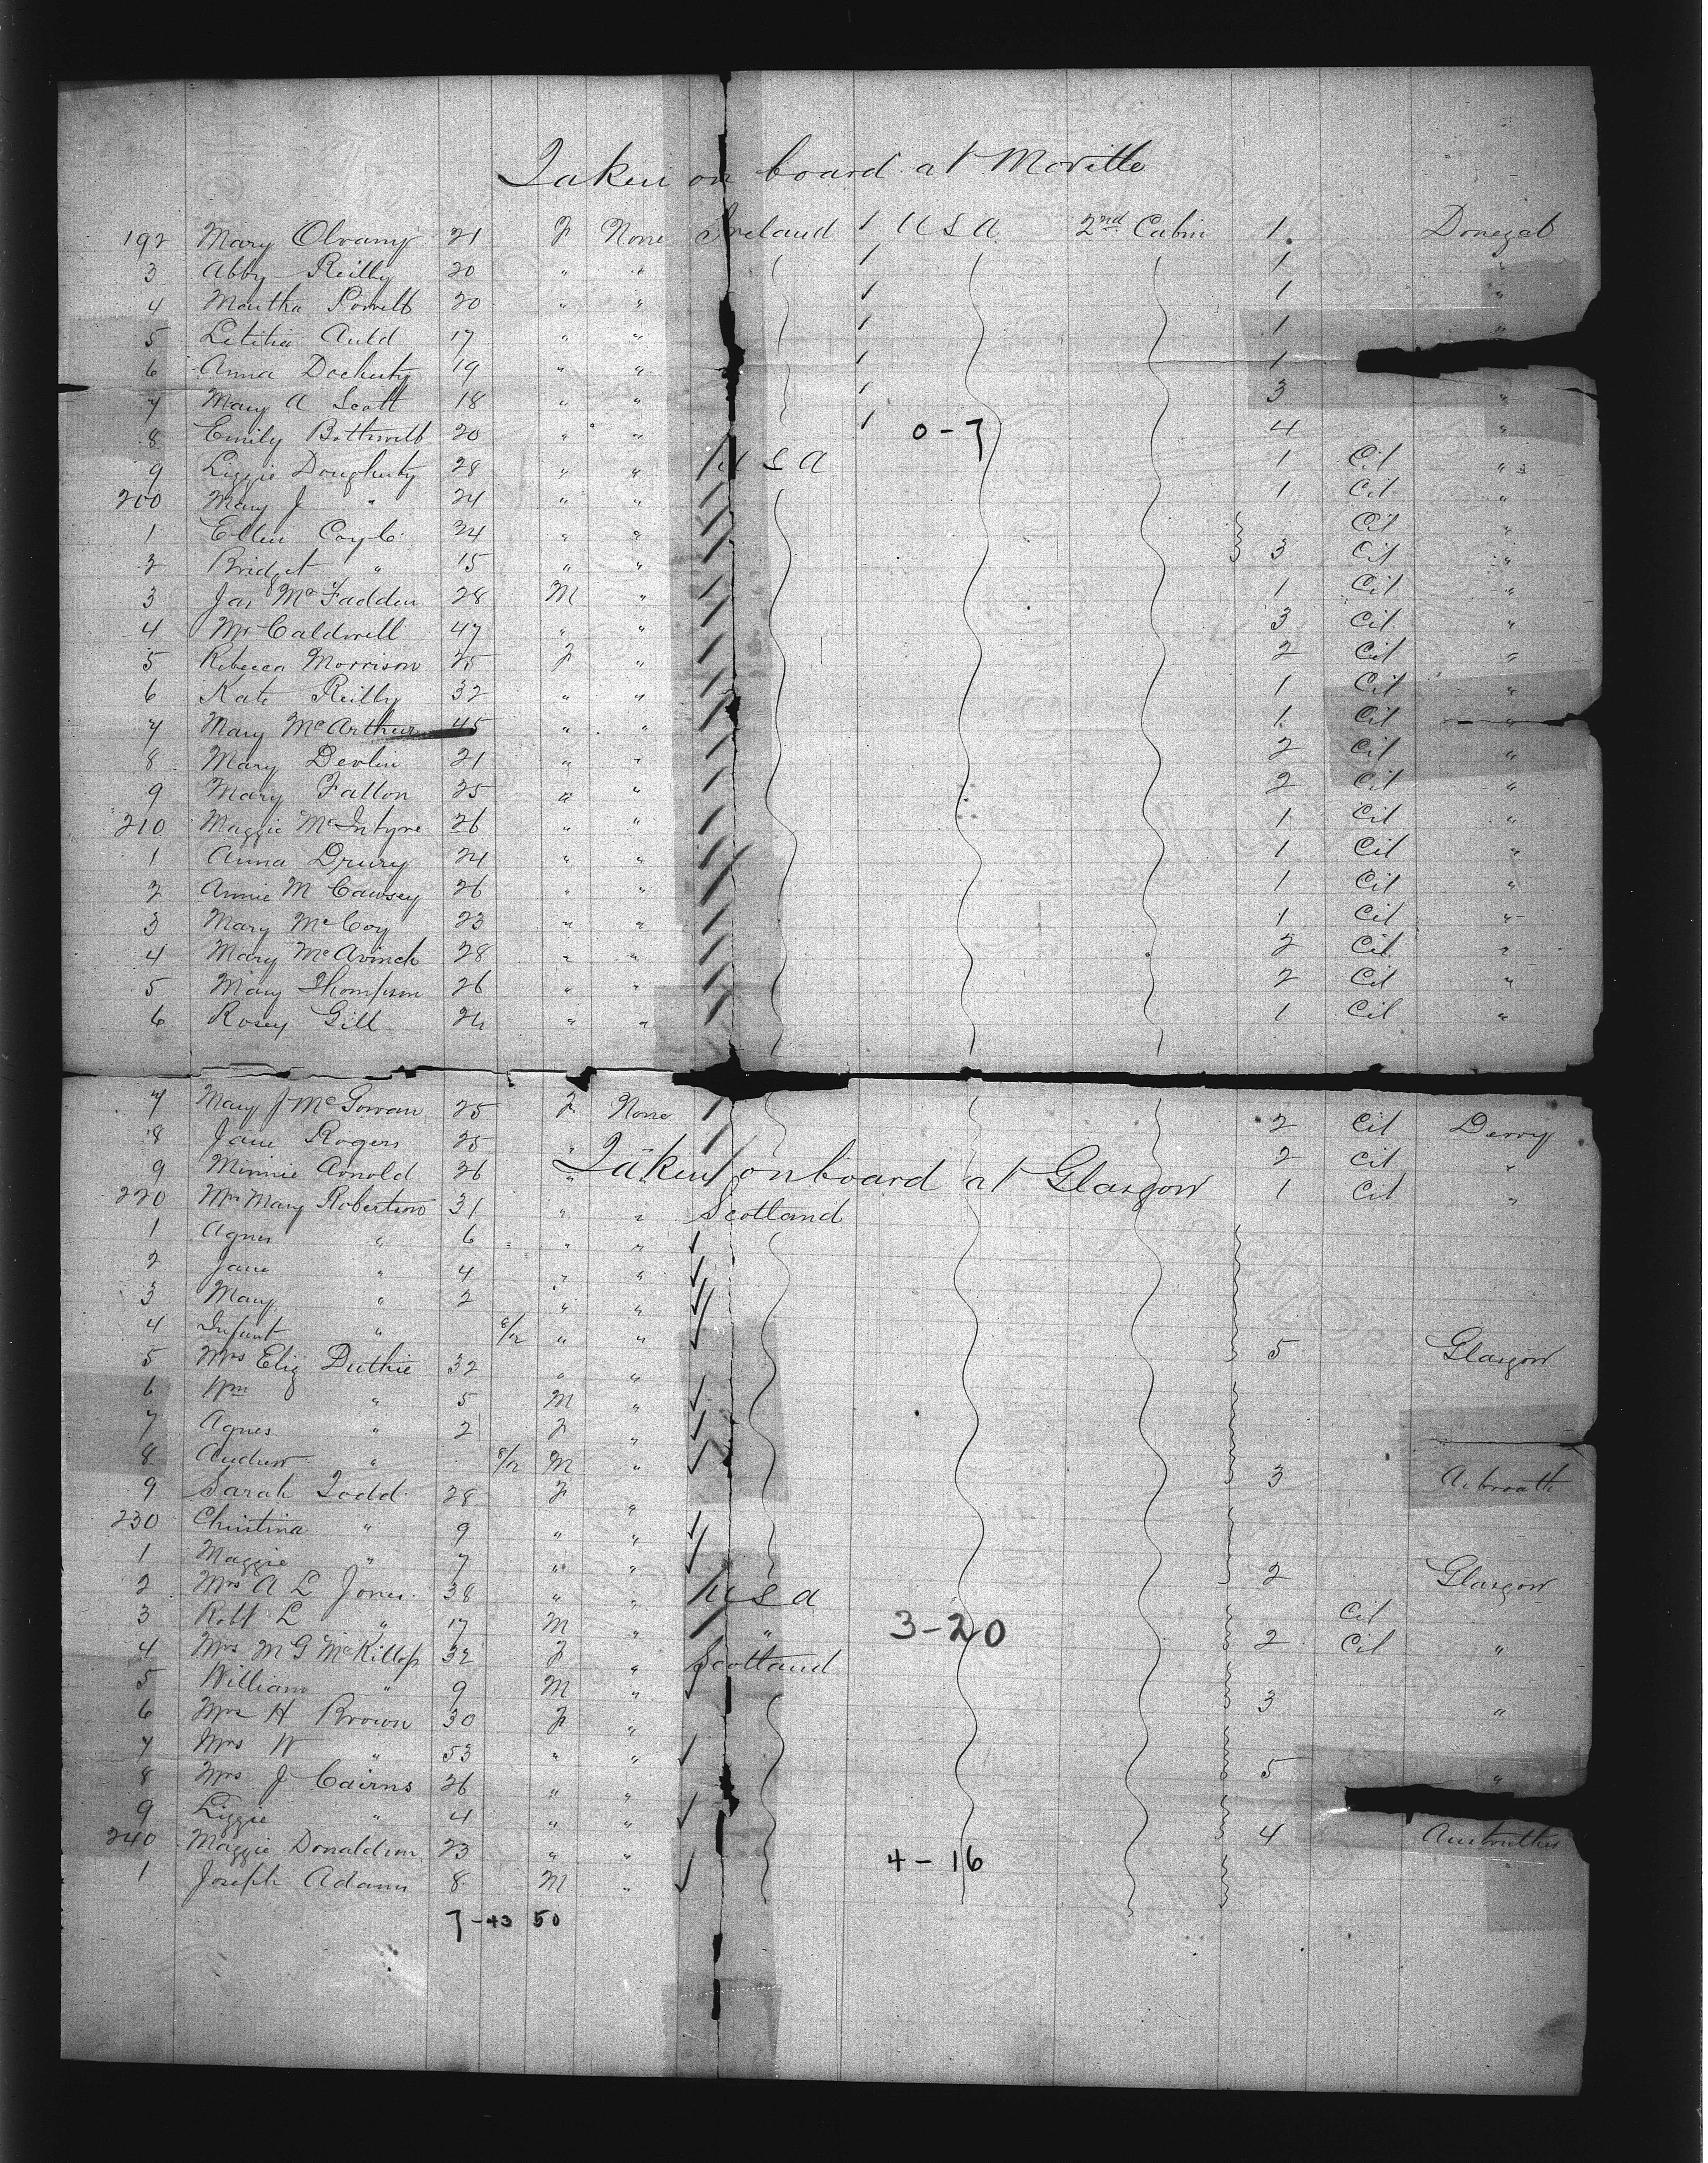 Taken on board at Moville
192 Mary Olvany 21 F None Ireland 1 U S A 2nd Cabin 1 Donegal
3 Abby Reilly 20 " " 1 1 "
4 Martha 20 " " 1 1 "
5 Letitia Auld 17 " " 1 1 "
6 Anna Docherty 19 " " 1 1
7 Mary A Scott 18 " " 1 3 "
8 Emily Bothwell 20 " " 1 0-7 4 "
9 Lizzie Dougherty 28 " " U S A 1 Cit "
200 Mary J " 24 " " 1 Cit "
1 Ellen Coyle 34 " " Cit "
2 Bridget " 15 " " 3 Cit "
3 Jas McFadden 28 M " 1 Cit "
4 Mr Caldwell 47 " " 3 Cit "
5 Rebecca Morrison 25 F " 2 Cit "
6 Kate Reilly 32 " " 1 Cit "
7 Mary McArthur 45 " " 1 Cit "
8 Mary Devlin 21 " " 2 Cit "
9 Mary Fallon 25 " " 2 Cit "
210 Maggie McIntyre 26 " " 1 Cit "
1 Anna Drury 24 " " 1 Cit "
2 Annie M Causey 26 " " 1 Cit "
3 Mary McCoy 23 " " 1 Cit "
4 Mary McAvinch 28 " " 2 Cit "
5 Mary Thompson 26 " " 2 Cit "
6 Rosey Gill 24 " " 1 Cit "
7 Mary J McGowan 25 F None 2 Cit Derry
8 Jane Rogers 25 " 2 Cit "
Taken on board at Glasgow
9 Minnie Arnold 26 " " 1 Cit "
220 Mrs Mary Robertson 31 " " Scotland
1 Agnes " 6 " "
2 Jane " 4 " "
3 Mary " 2 " "
4 Infant " 8/12 " " 5 Glasgow
5 Mrs Eliz Duthie 32 " "
6 Wm " 5 M "
7 Agnes " 2 F "
8 Andrew " 8/12 M " 3 Arbroath
9 Sarah Todd 28 F "
230 Christina " 9 " "
1 Maggie " 7 " " 2 Glasgow
2 Mrs A L Jones 38 " " U S A Cit
3 Robt L " 17 M " " 3-20 2 Cit "
4 Mrs M G McKillop 32 F " Scotland
5 William " 9 M " 3 "
6 Mrs H Brown 30 F "
7 Mrs W " 53 " " 5 "
8 Mrs J Cairns 26 " "
9 Lizzie " 4 " " 4 Anstruther
240 Maggie Donaldson 23 " " 4-16 "
1 Joseph Adams 8 M "
7-43 50